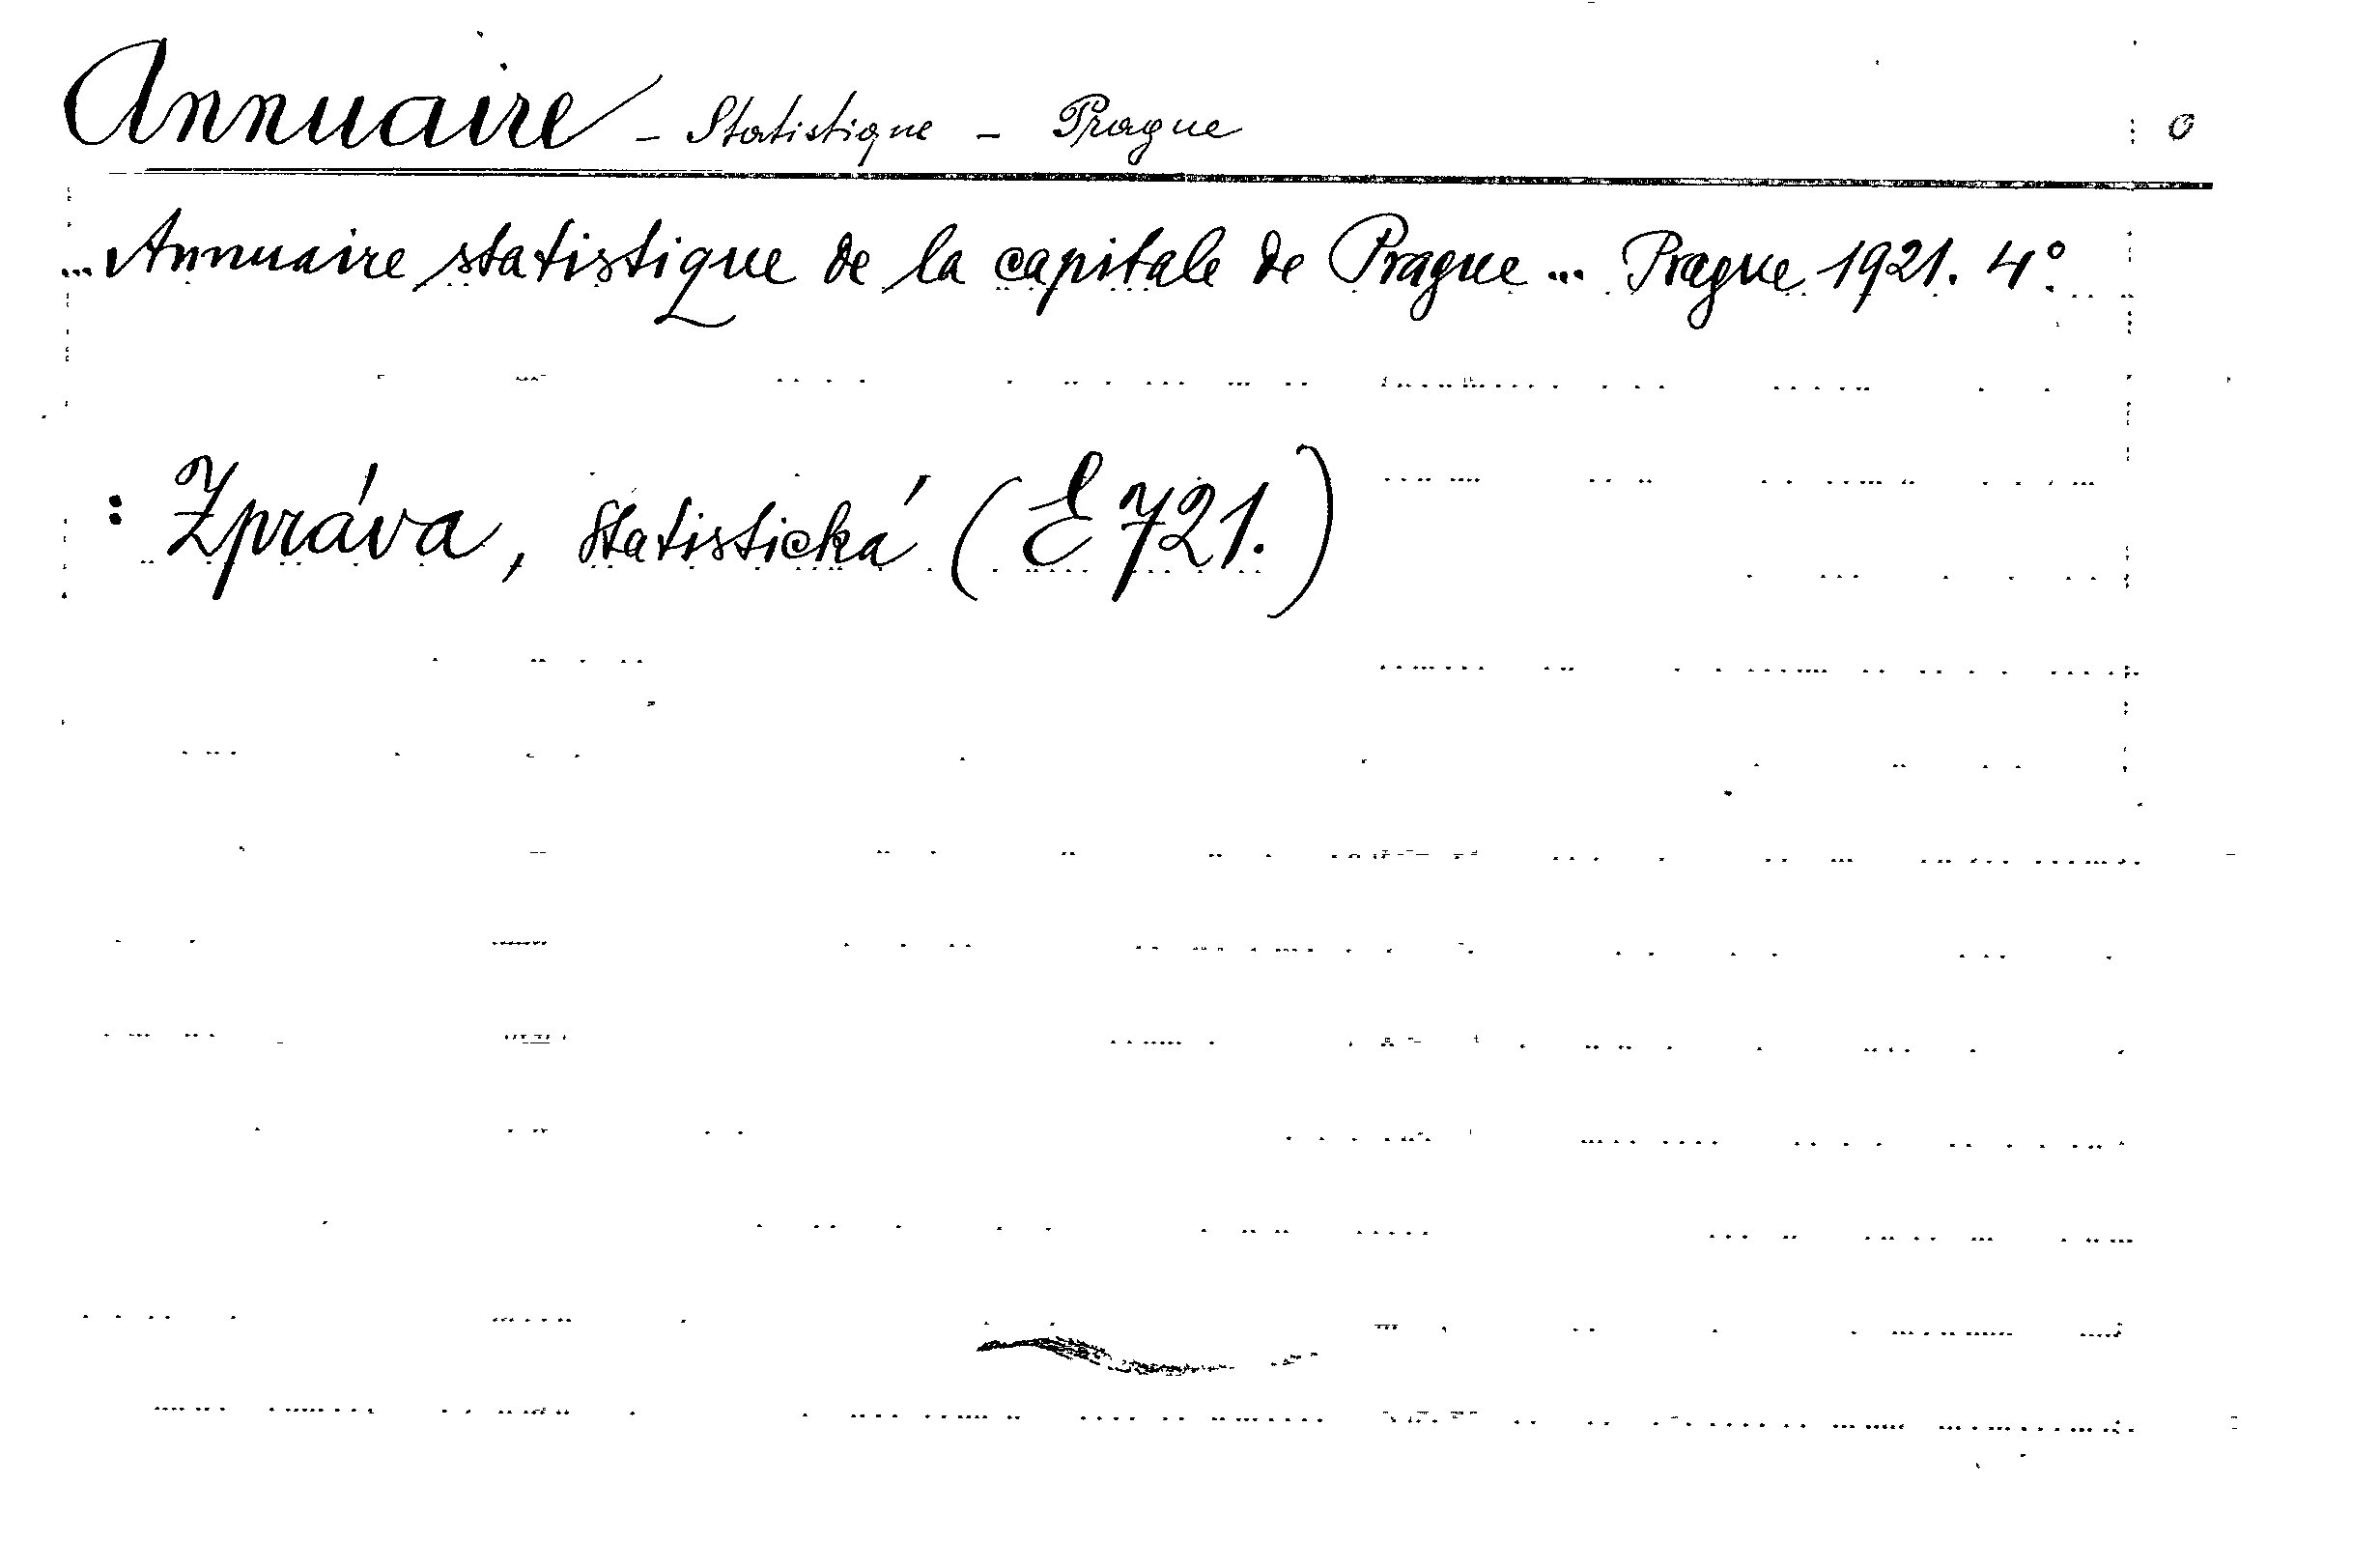 Annuaire - Statistique - Prague o
... Annuaire statistique de la capitale de Prague ... Prague 1921. 4°.
: Zpráva, statistická (E 721.)